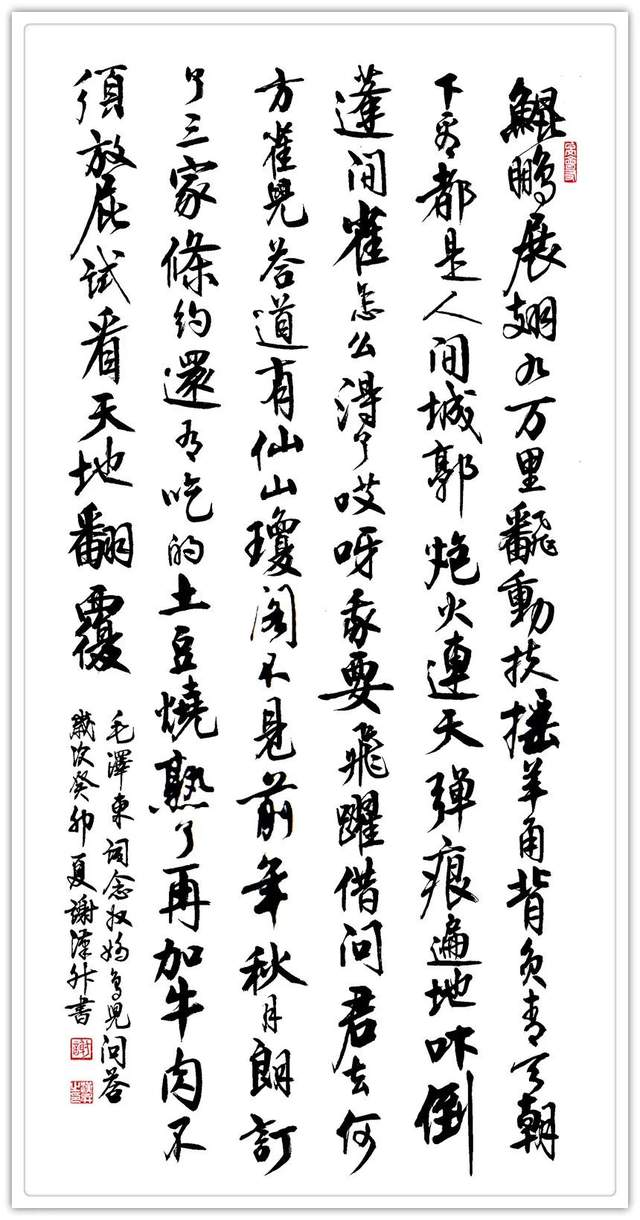 鯤鵬展翅九万里飜動扶摇羊角背负青天朝
下看都是人间城郭炮火連天弹痕遍地吓倒
蓬间雀怎么得了哎呀我要飛躍借问君去何
方雀兒答道有仙山瓊阁不見前年秋月朗訂
了三家條约還有吃的土豆燒熟了再加牛肉不
須放屁試看天地翻覆
毛澤東词念奴娇鸟兒问答
歲次癸卯夏謝書
謝